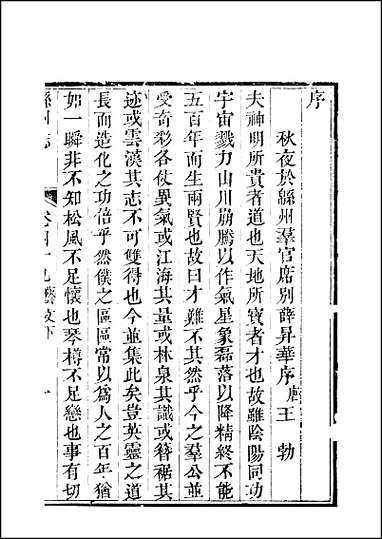 序
秋夜於緜州羣官席別薛昇華序唐王勃
夫神明所貴者道也天地所寶者才也故雖陰陽同功
宇宙戮力山川崩騰以作氣星象磊落以降精終不能
五百年而生兩賢也故曰才難不其然乎今之羣公並
受奇彩各仗異氣或江海其量或林泉其識或簪裾其
迹或雲漢其志不可雙得也今並集此矣豈英靈之道
長而造化之功倍乎然僕之區區常以爲人之百年猶
如一瞬非不知松風不足懷也琴樽不足戀也事有切
緜州志
卷四十九藝文下
一